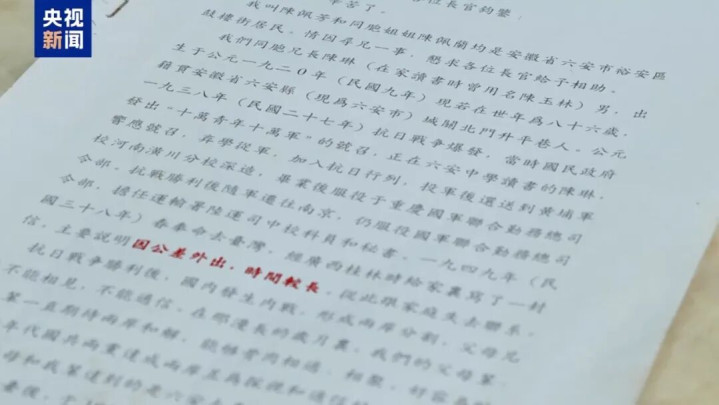 央视新闻
位長官鈞鑒
我叫陳佩芳和同胞姐姐陳佩蘭均是安徽省六安市裕安區
鼓樓街居民，情因尋兄一事，懇求各位長官給予相助。
我們同胞兄長陳琳（在家讀書時曾用名陳玉林）男，出
生于公元一九二0年（民國九年）現若在世年爲八十六歲，
籍貫安徽省六安縣（現爲六安市）城關北門升平巷人。公元
一九三八年（民國二十七年）抗日戰爭爆發，當時國民政府
發出“十萬青年十萬軍”的號召，正在六安中學讀書的陳琳，
響應號召，弃學從軍，加入抗日行列，投軍後選送到黄埔軍
校河南潢川分校深造，畢業後服役于重慶國軍聯合勤務總司
令部，抗戰勝利後隨軍遷往南京，仍服役國軍聯合勤務總司
令部，擔任運輸署陸運司中校科員和秘書。一九四九年（民
國三十八年）春奉命去臺灣，經廣西桂林時給家裏寫了一封
信，主要説明因公差外出，時間較長，從此跟家庭失去聯系。
抗日戰爭勝利後，國内發生内戰，形成兩岸分割，父母兄
不能相見，不能通信。在那漫長的歲月裏，我們的父母
一直期待兩岸和解，能够骨肉相逢，相聚，
年代國共兩黨達成兩岸
母和我
臺後，